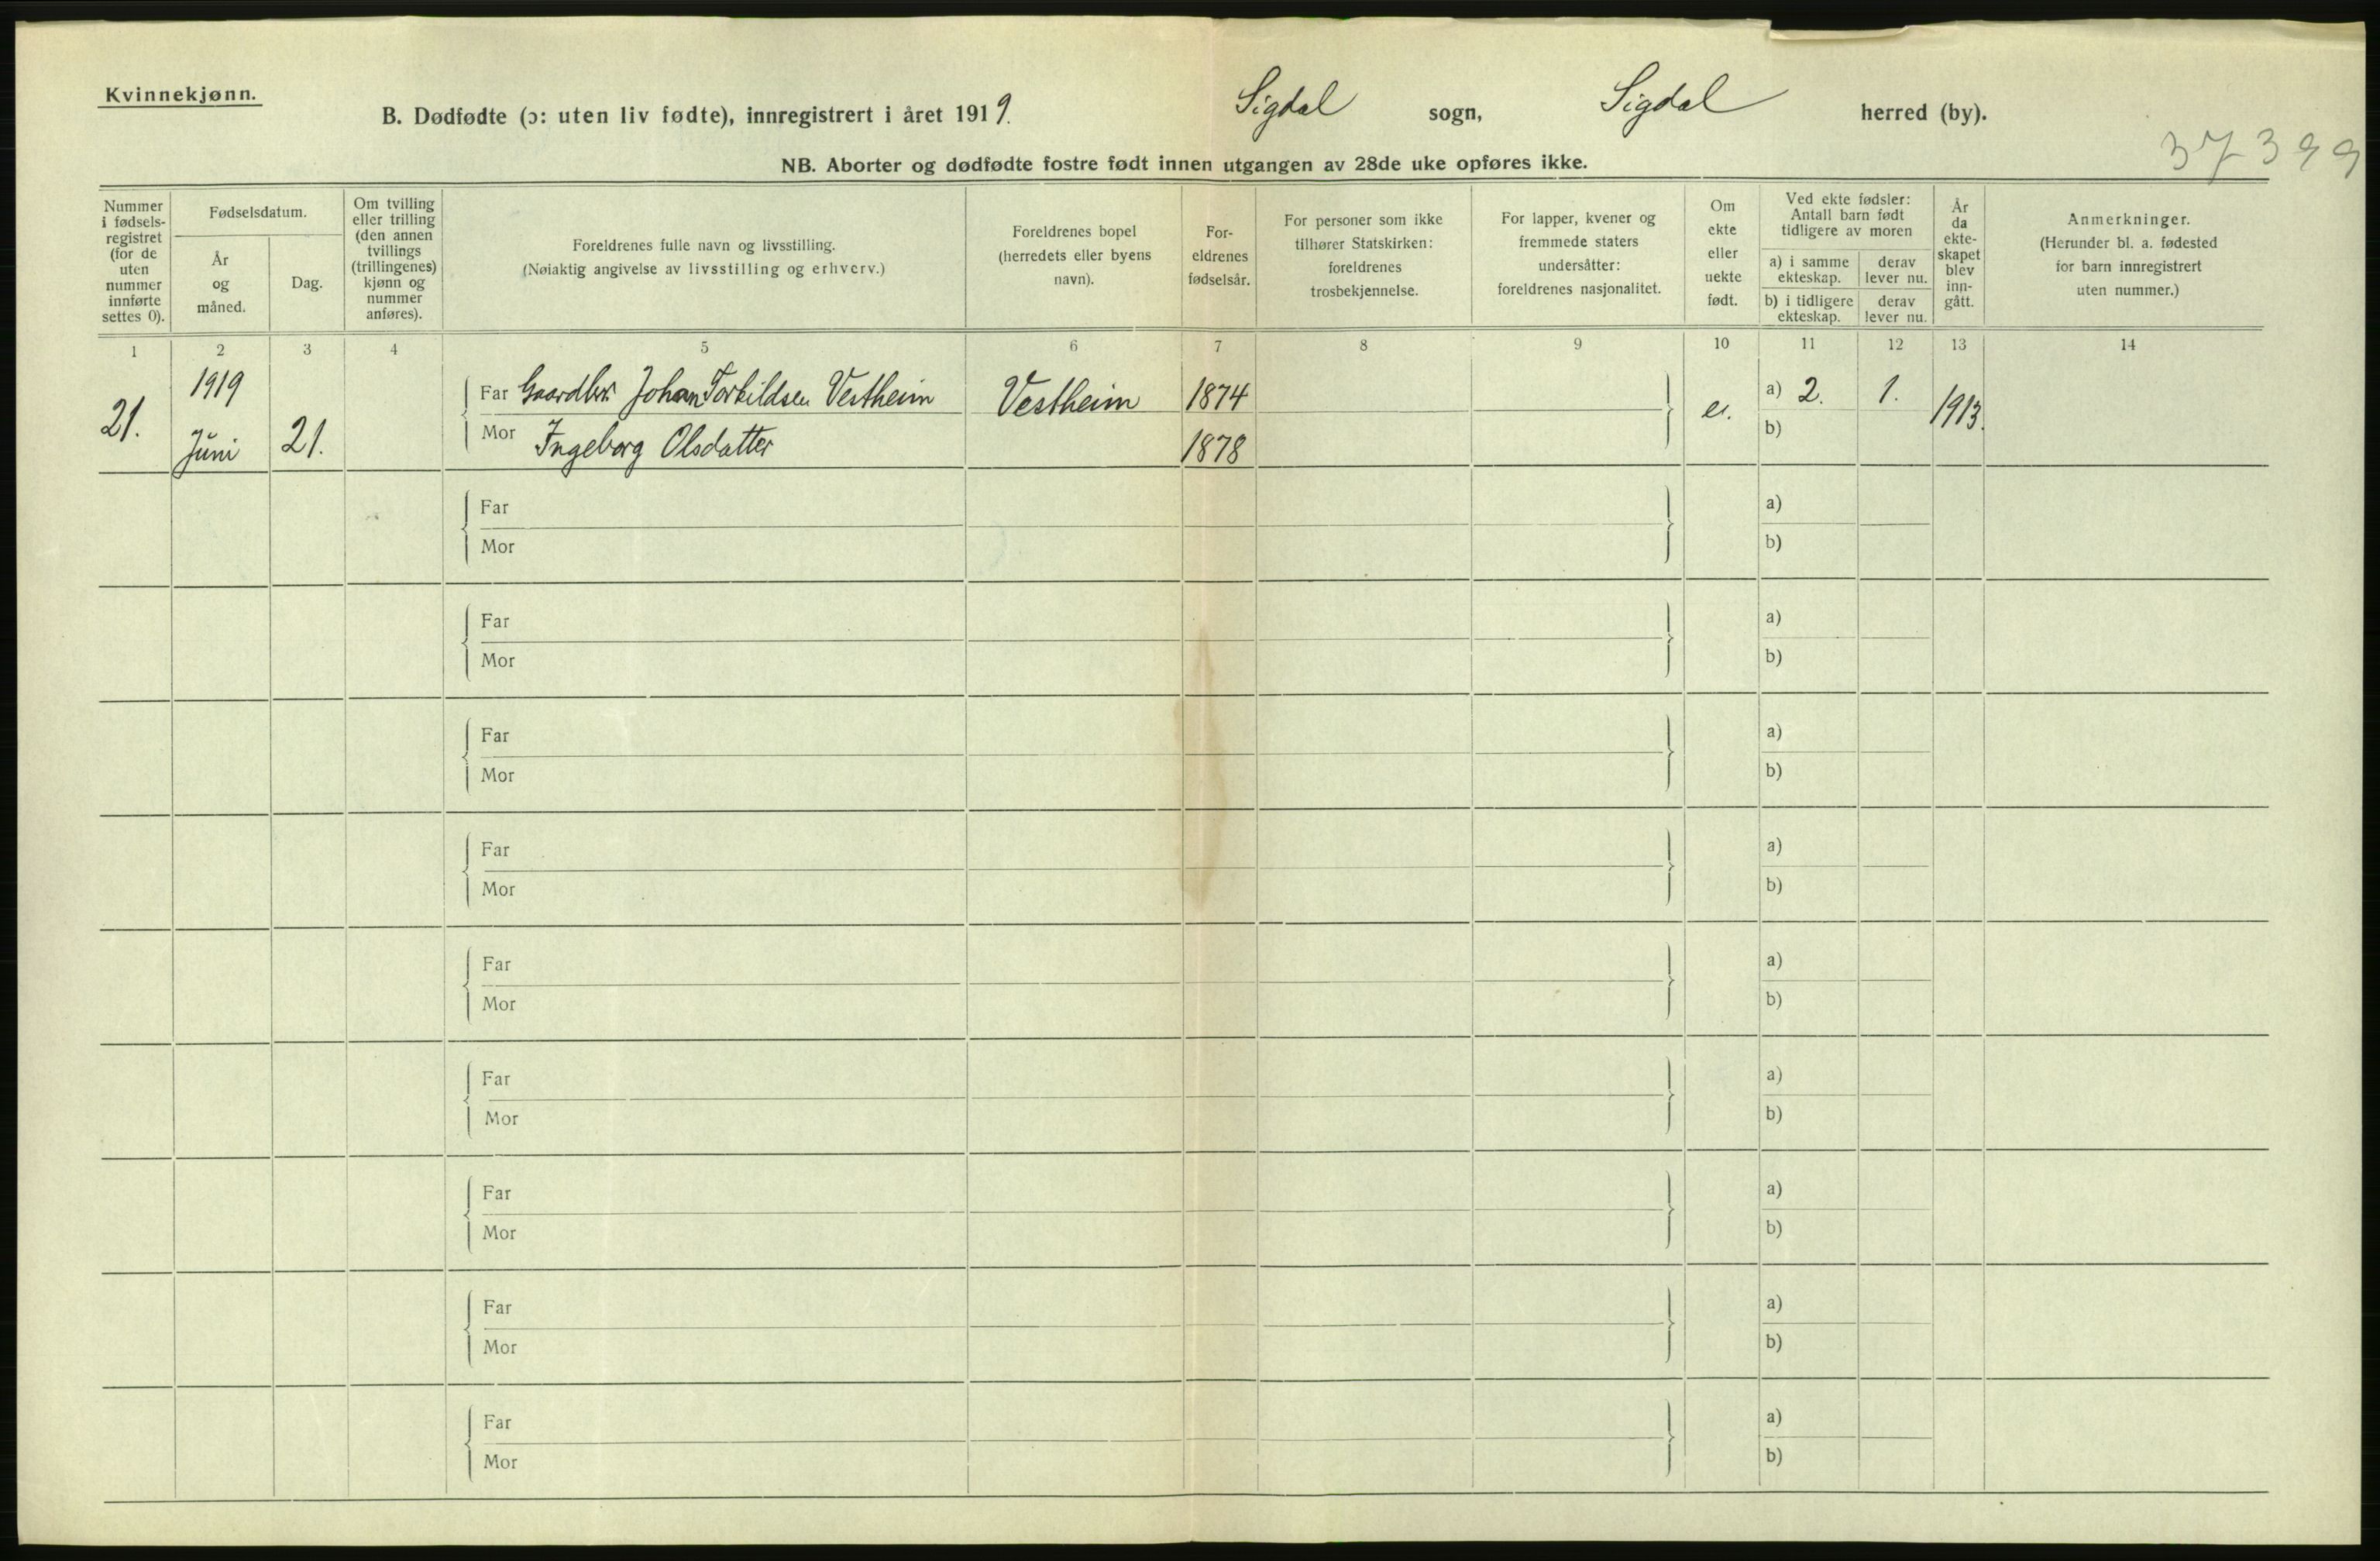 Kvinnekjønn.
B. Dødfødte (ɔ: uten liv fødte), innregistrert i året 1919. Sigdal sogn, Sigdal herred (by).
37399
NB. Aborter og dødfødte fostre født innen utgangen av 28de uke opføres ikke.
Nummer
i fødsels-
registret
(for de
uten
nummer
innførte
settes 0).
Fødselsdatum.
År
og
måned.
Dag.
Om tvilling
eller trilling
(den annen
tvillings
(trillingenes)
kjønn og
nummer
anføres).
Foreldrenes fulle navn og livsstilling.
(Nøiaktig angivelse av livsstilling og erhverv.)
Foreldrenes bopel
(herredets eller byens
navn).
For-
eldrenes
fødselsår.
For personer som ikke
tilhører Statskirken:
foreldrenes
trosbekjennelse.
For lapper, kvener og
fremmede staters
undersåtter:
foreldrenes nasjonalitet.
Om
ekte
eller
uekte
født.
Ved ekte fødsler:
Antall barn født
tidligere av moren
a) i samme
ekteskap.
derav
lever nu.
b) i tidligere
ekteskap.
derav
lever nu.
År
da
ekte-
skapet
blev
inn-
gått.
Anmerkninger.
(Herunder bl. a. fødested
for barn innregistrert
uten nummer.)
1 2 3 4 5 6 7 8 9 10 11 12 13 14
21. 1919 Juni 21.
Far Gaardbr. Johan Torkildsen Vestheim Vestheim 1874 e. a) 2. 1. 1913.
Mor Ingeborg Olsdatter 1878 b)
Far a)
Mor b)
Far a)
Mor b)
Far a)
Mor b)
Far a)
Mor b)
Far a)
Mor b)
Far a)
Mor b)
Far a)
Mor b)
Far a)
Mor b)
Far a)
Mor b)